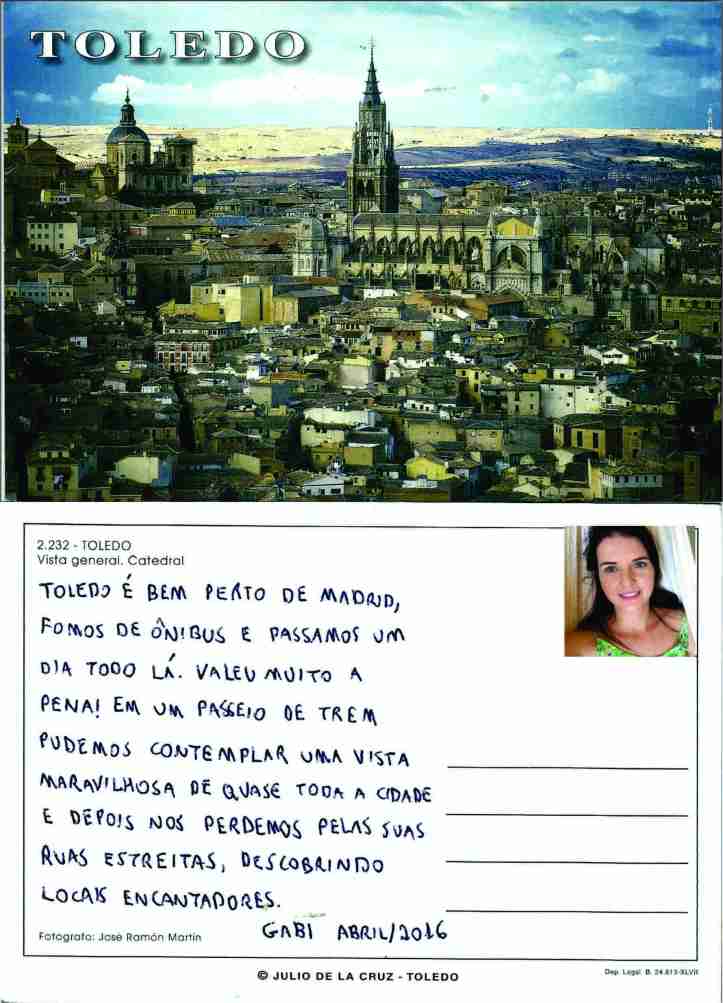 TOLEDO
2.232 - TOLEDO
Vista general. Catedral
TOLEDO É BEM PERTO DE MADRID,
FOMOS DE ÔNIBUS E PASSAMOS UM
DIA TODO LÁ. VALEU MUITO A
PENA! EM UM PASSEIO DE TREM
PUDEMOS CONTEMPLAR UMA VISTA
MARAVILHOSA DE QUASE TODA A CIDADE
E DEPOIS NOS PERDEMOS PELAS SUAS
RUAS ESTREITAS, DESCOBRINDO
LOCAIS ENCANTADORES.
GABI ABRIL/2016
Fotografo: José Ramón Martín
© JULIO DE LA CRUZ - TOLEDO
Dep. Legal. B. 24.613-XLVII